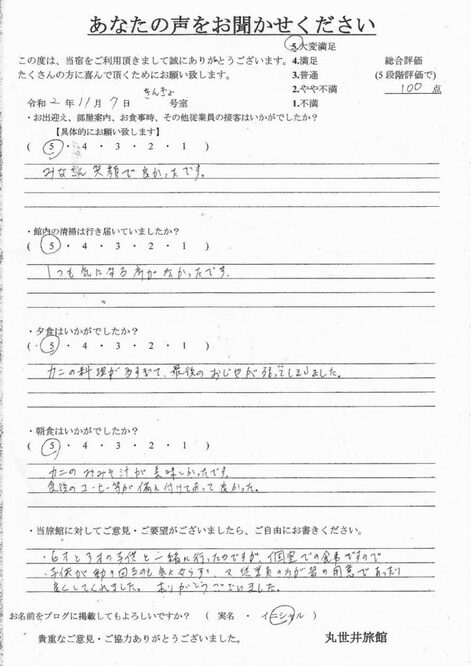 あなたの声をお聞かせください
この度は、当宿をご利用頂きまして誠にありがとうございます。
たくさんの方に喜んで頂くためにお願い致します。
5.大変満足
4.満足
3.普通
2.やや不満
1.不満
総合評価
(5段階評価で)
100 点
令和 2年 11月 7日 きんぎょ 号室
・お出迎え、部屋案内、お食事時、その他従業員の接客はいかがでしたか?
【具体的にお願い致します】
( 5 ・ 4 ・ 3 ・ 2 ・ 1 )
みなさん笑顔で良かったです。
・館内の清掃は行き届いていましたか?
( 5 ・ 4 ・ 3 ・ 2 ・ 1 )
1つも気になる所がなかったです。
・夕食はいかがでしたか?
( 5 ・ 4 ・ 3 ・ 2 ・ 1 )
カニの料理が多すぎて、最後のおじやが残ってしまいました。
・朝食はいかがでしたか?
( 5 ・ 4 ・ 3 ・ 2 ・ 1 )
カニのみそ汁が美味しかったです。
食後のコーヒー等が備え付けてあって良かった。
・当旅館に対してご意見・ご要望がございましたら、ご自由にお書きください。
・6才と3才の子供と一緒に行ったのですが、個室での食事ですので
・子供が動き回るのも
良くしてくれました。ありがとうございました。
お名前をブログに掲載してもよろしいですか? ( 実名 ・ イニシャル )
貴重なご意見・ご協力ありがとうございました。
丸世井旅館